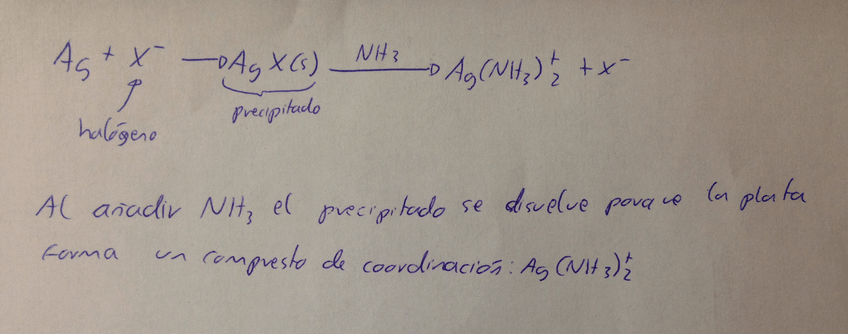 Ag + X⁻ → AgX(s) NH3 → Ag(NH3)₂⁺ + X⁻
halógeno precipitado
Al añadir NH3 el precipitado se disuelve porque la plata
forma un compuesto de coordinación: Ag(NH3)₂⁺